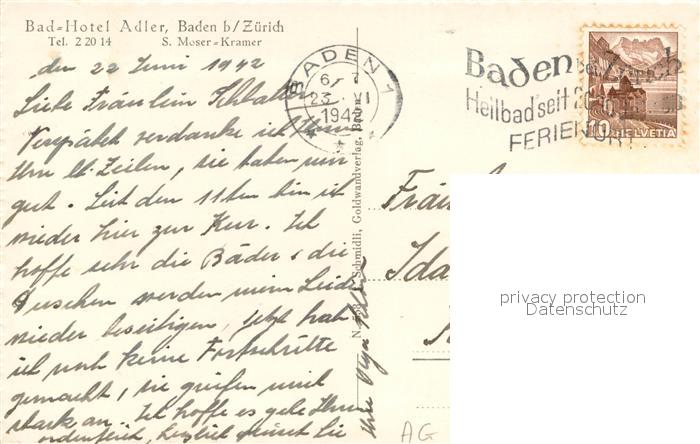 Bad-Hotel Adler, Baden b/Zürich
Tel. 2 20 14 S. Moser-Kramer
den 22 Juni 1942
Liebe Fräulein
Verspätet verdanke ich Ihnen
Ihre lb. Zeilen, sie haben mir
gut. Seit dem 11ten bin ich
wieder hier zur Kur. Ich
hoffe sehr die Bäder & die
Duschen werden mein Leiden
wieder beseitigen, jetzt hab
ich noch keine Fortschritte
gemacht, sie greifen mich
stark an. Ich hoffe es gehe Ihnen
ordentlich, herzlich grüsst Sie
Ihre
BADEN 1
23. VI
1942
Baden bei Zürich
Heilbad seit
FERIENORT
10 HELVETIA
Schmidli, Goldwandverlag, Baden.
Fräu
Ida
AG
privacy protection
Datenschutz